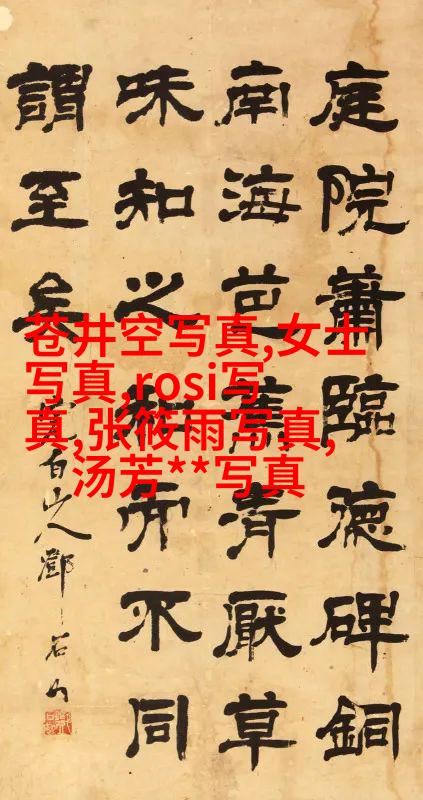 庭院蕭臨德碑銅
南海芭蕉清厭草
味知之而不同
謂至矣
完白山人鄧石如
苍井空写真,女士
写真,rosi写
真,张筱雨写真,
汤芳**写真